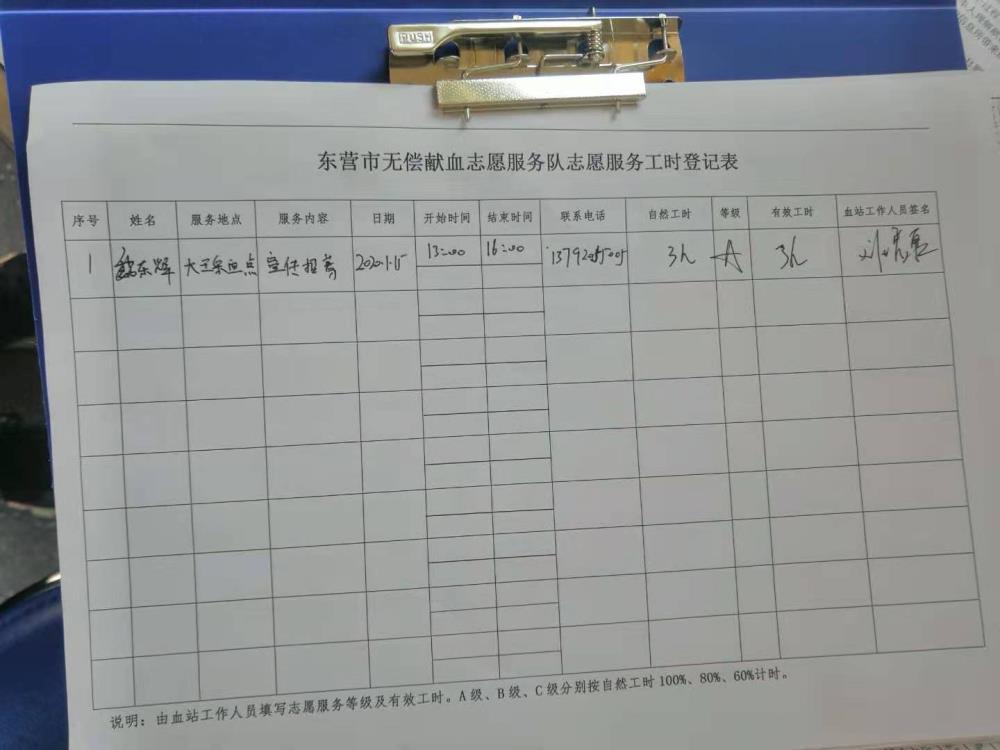 PUSH
东营市无偿献血志愿服务队志愿服务工时登记表
序号 姓名 服务地点 服务内容 日期 开始时间 结束时间 联系电话 自然工时 等级 有效工时 血站工作人员签名
1 魏东辉 大王采血点 宣传招募 2020.1.15 13:00 16:00 3h A 3h
说明：由血站工作人员填写志愿服务等级及有效工时。A级、B级、C级分别按自然工时100%、80%、60%计时。